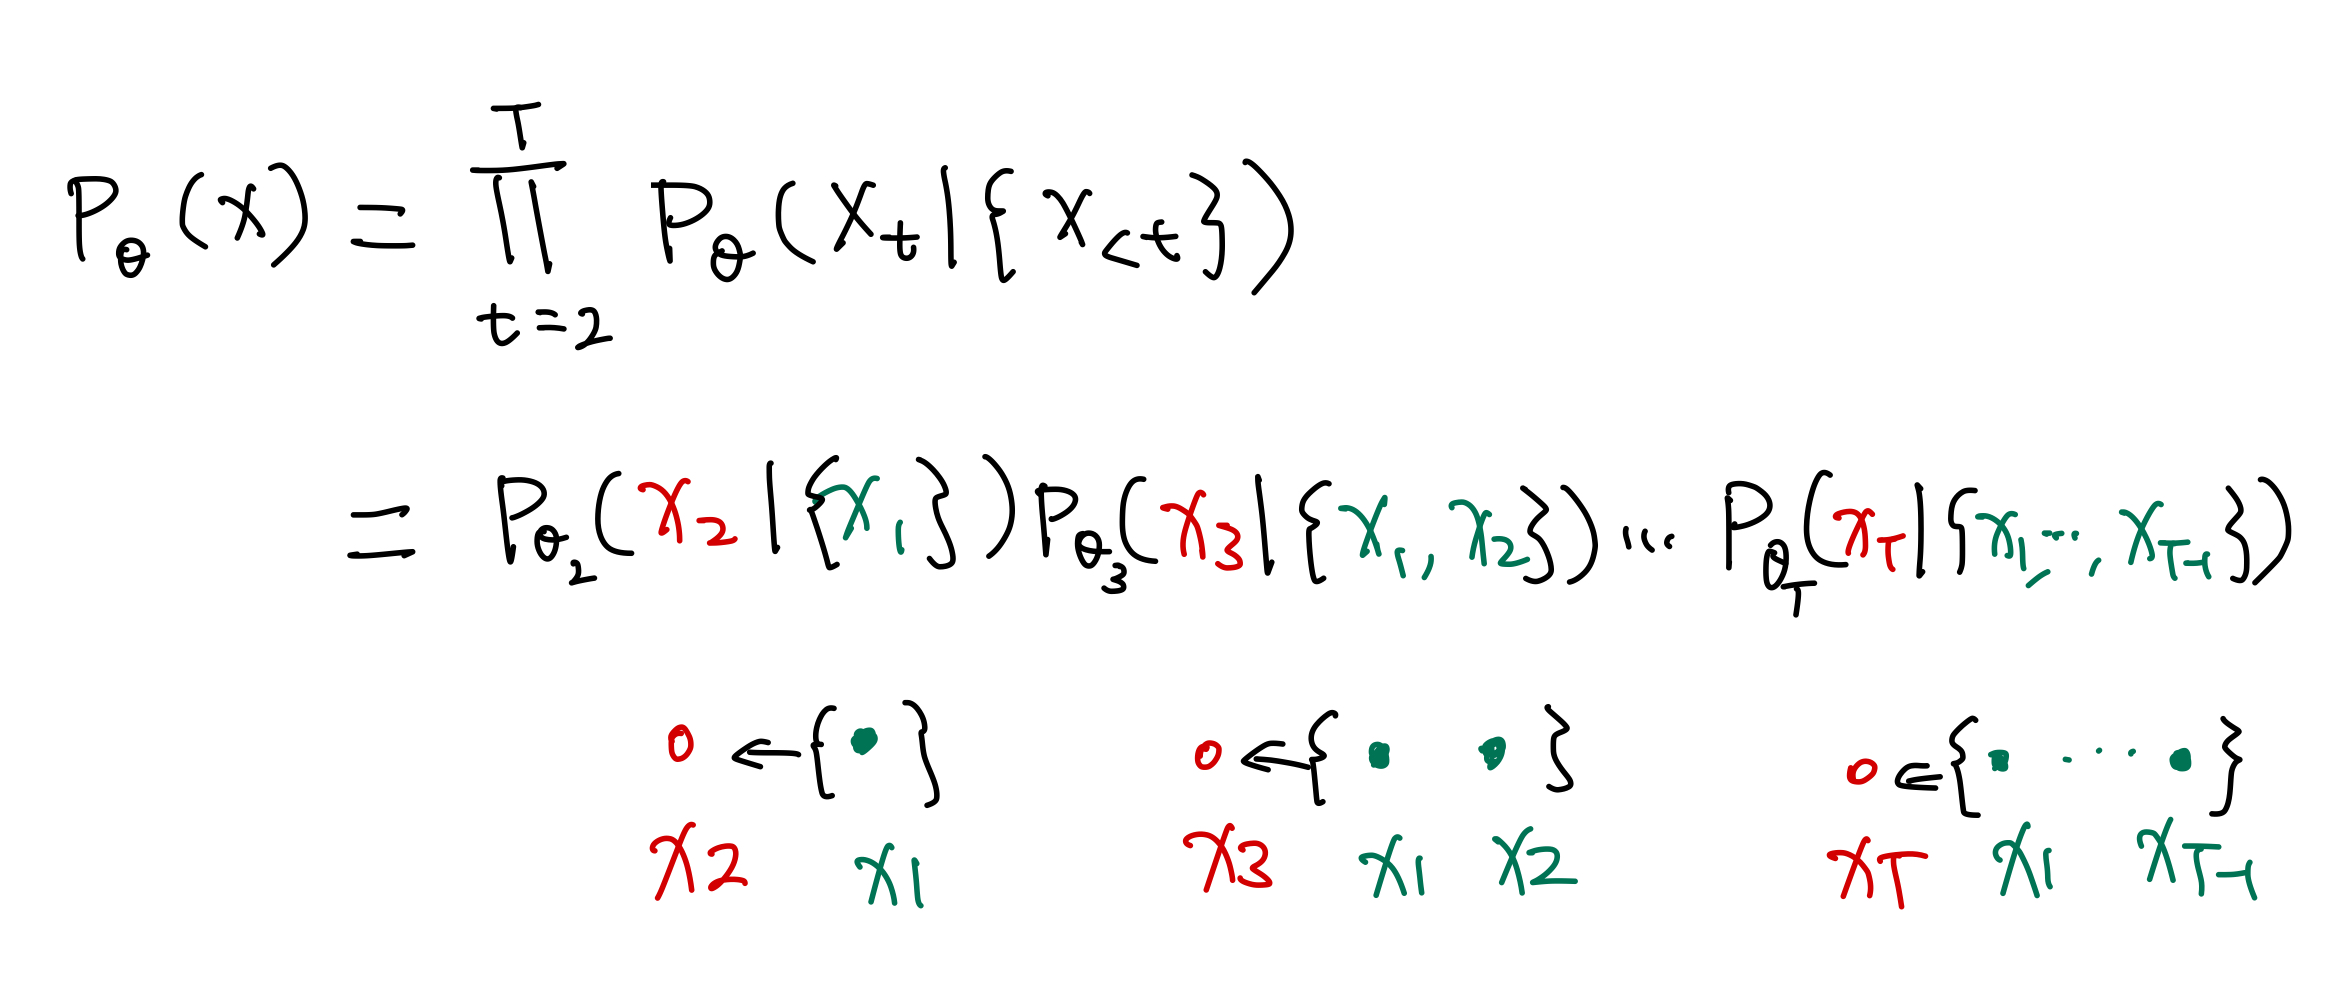 P_θ(x) = ∏_{t=2}^{T} P_θ(x_t|{x_{<t}})
= P_{θ_2}(x_2|{x_1}) P_{θ_3}(x_3|{x_1, x_2}) ... P_{θ_T}(x_T|{x_1, ..., x_{T-1}})
o ← {•} o ← {• •} o ← {• ... •}
x_2 x_1 x_3 x_1 x_2 x_T x_1 x_{T-1}